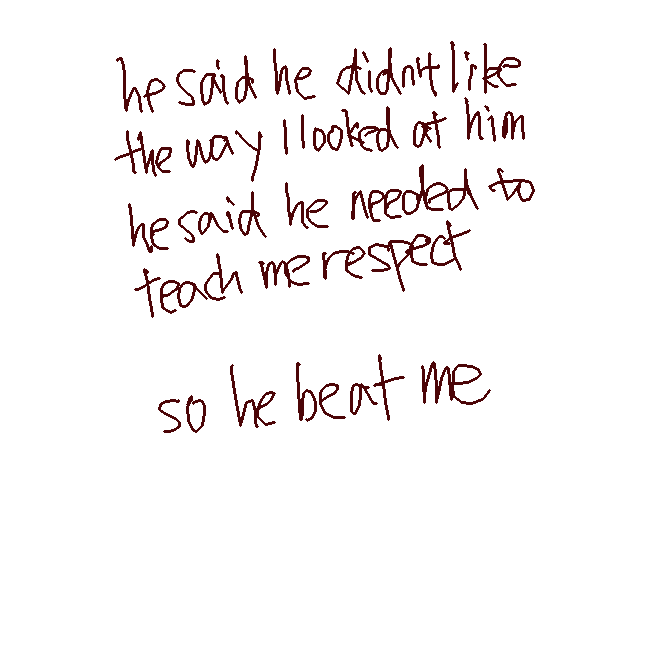 he said he didn't like
the way I looked at him
he said he needed to
teach me respect
so he beat me